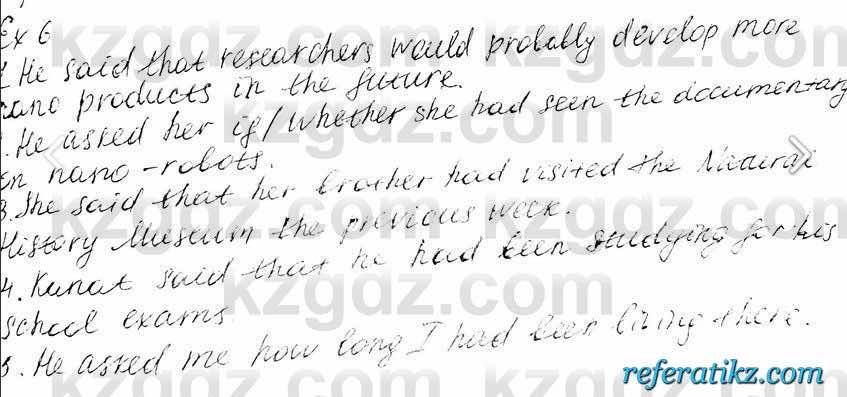 Ex 6
1. He said that researchers would probably develop more
nano products in the future.
2. He asked her if/whether she had seen the documentary
on nano-robots.
3. She said that her brother had visited the Natural
History Museum the previous week.
4. Kanat said that he had been studying for his
school exams.
5. He asked me how long I had been living there.
kzgdz.com
referatikz.com